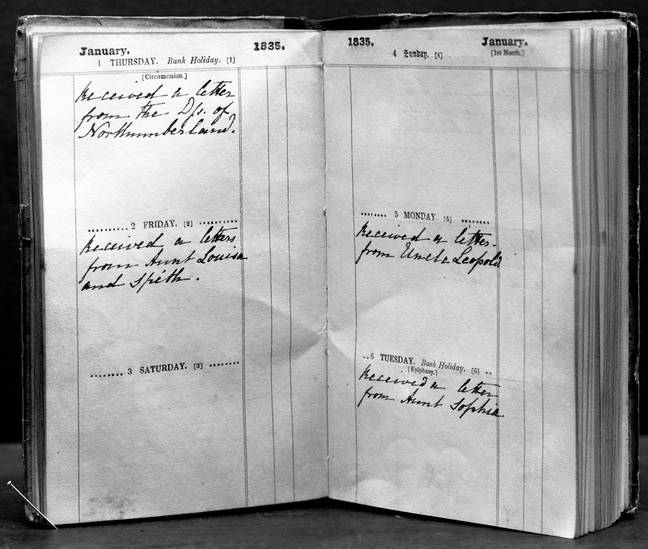 January. 1835.
1 THURSDAY. Bank Holiday. [1]
[Circumcision.]
Received a letter
from the D/s. of
Northumberland.
2 FRIDAY. [2]
Received a letters
from Aunt Louisa
and Späth.
3 SATURDAY. [3]
1835. January.
4 Sunday. [4] [1st Month.]
5 MONDAY. [5]
Received a letter
from Uncle Leopold
6 TUESDAY. Bank Holiday. [6]
[Epiphany.]
Received a letter
from Aunt Sophia